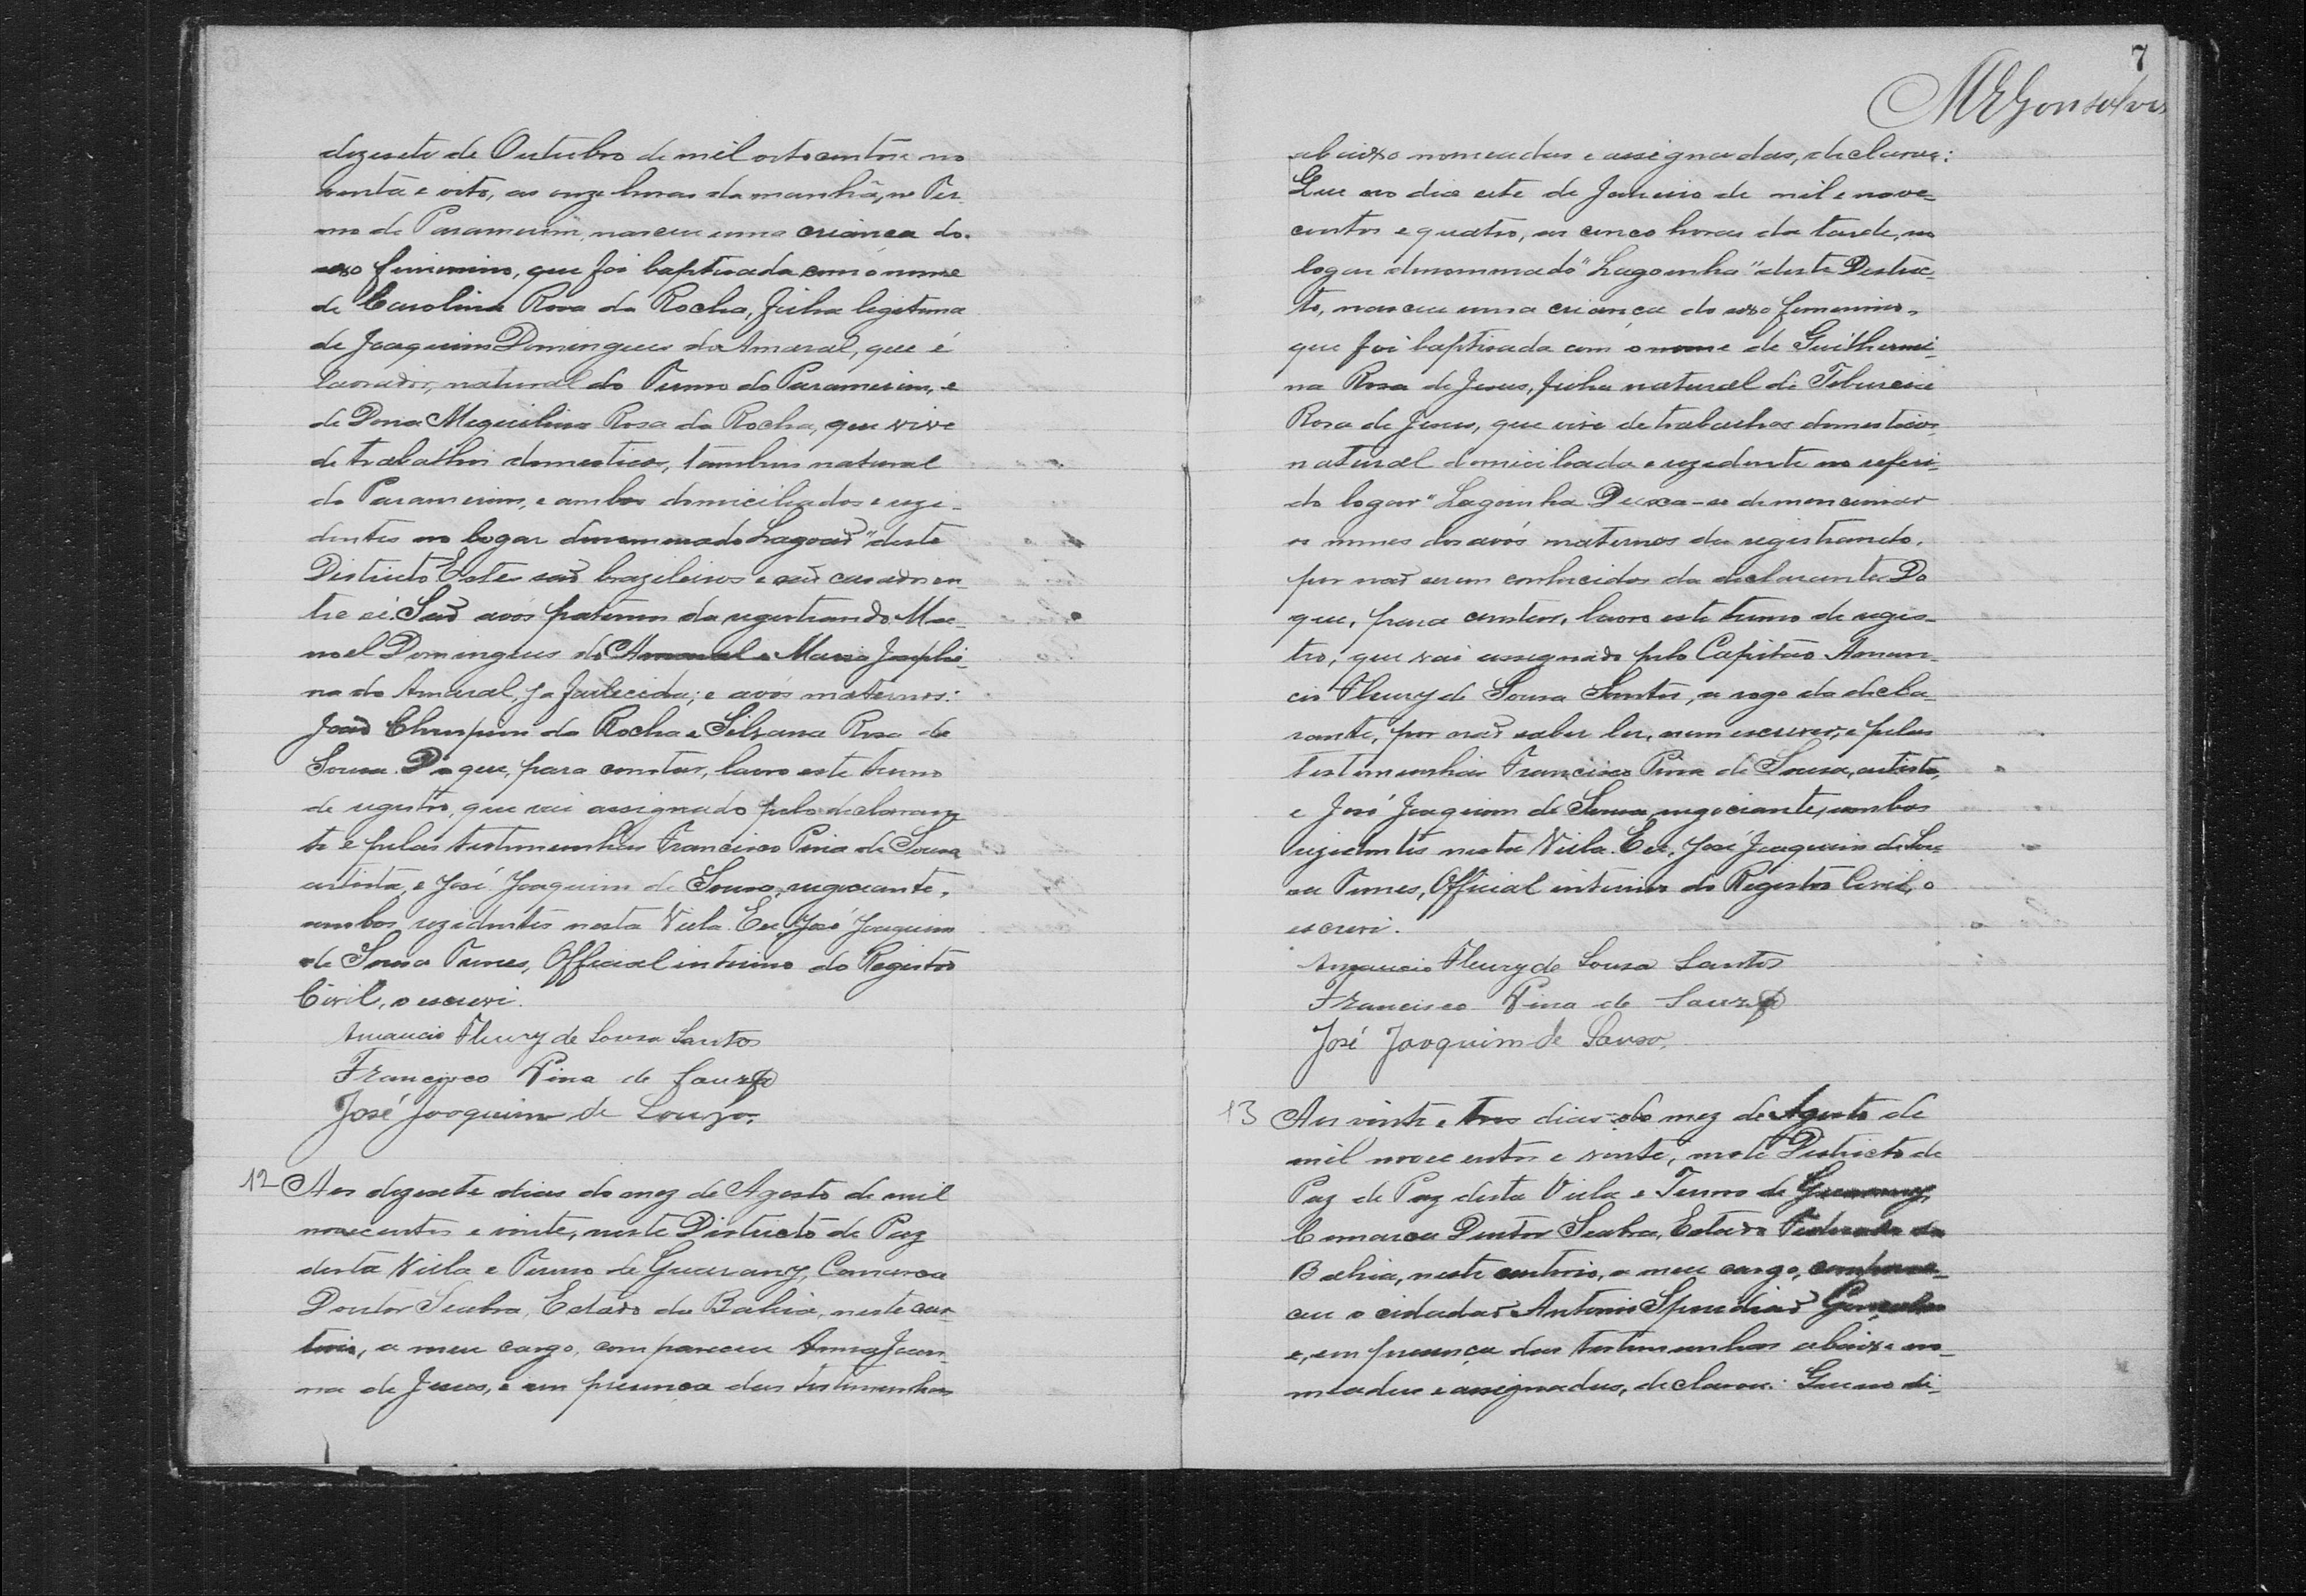 dezesete de Outubro de mil oitocentos no
venta e oito, as onze horas da manhã, no Ter
mo de Paramerim, nasceu uma criança do
sexo feminino, que foi baptisada com o nome
de Carolina Rosa da Rocha, filha legitima
de Joaquim Domingues do Amaral, que é
lavrador, natural do Termo do Paramerim, e
de Dona Miquilina Rosa da Rocha, que vive
de trabalhos domesticos, tambem natural
do Paramerim, e ambos domiciliados e rezi-
dentes no logar denominado Lagoas" deste
Districto Estes são brazileiros e são casados en
tre si. São avós paternos da registrando Ma-
noel Domingues do Amaral e Maria Josephi-
na do Amaral, ja fallecida; e avós maternos:
João Chrispim da Rocha e Silvana Rosa de
Sousa. Do que, para constar, lavro este termo
de registro, que vai assignado pelo declaran
te e pelas testemunhas Francisco Pina de Sousa
artista, e José Joaquim de Sousa, negociante,
ambos rezidentes nesta Villa. Eu, José Joaquim
de Sousa Tunes, Official interino do Registro
Civil, o escrevi.
Amancio Fleury de Sousa Santos
Francisco Pina de Souza
José Joaquim de Souza.
12 Aos dezesete dias do mez de Agosto de mil
novecentos e vinte, neste Districto de Paz
desta Villa e Termo de Guarany, Comarca
Doutor Seabra, Estado da Bahia, neste car
torio, a meu cargo, compareceu Anna Joan-
na de Jesus, e em presença das testemunhas
7
MEGonsalves
abaixo nomeadas e assignadas, declarou:
Que no dia sete de Janeiro de mil e nove-
centos e quatro, as cinco horas da tarde, no
logar denominado "Lagoinha" deste Distric-
to, nasceu uma criança do sexo femenino,
que foi baptisada com o nome de Guilhermi-
na Rosa de Jesus, filha natural de Tiburcia
Rosa de Jesus, que vive de trabalhos domesticos,
natural domiciliada e rezidente no referi-
do logar "Lagoinha Deixa-se de mencionar
os nomes dos avós maternos da registrando,
por não serem conhecidos da declarante. Do
que, para constar, lavro este termo de regis-
tro, que vai assignado pelo Capitão Aman-
cio Fleury de Sousa Santos, a rogo da decla-
rante, por não saber ler, nem escrever, e pelas
testemunhas Francisco Pina de Sousa, artista,
e José Joaquim de Sousa, negociante, ambos
rezidentes nesta Villa. Eu, José Joaquim de Sou-
sa Tunes, Official interino do Registro Civil, o
escrevi.
Amancio Fleury de Sousa Santos
Francisco Pina de Souza
José Joaquim de Souza.
13 Aos vinte e tres dias do mez de Agosto de
mil novecentos e vinte, neste Districto de
Paz de Paz desta Villa e Termo de Guarany,
Comarca Doutor Seabra, Estado Federado da
Bahia, neste cartorio, a meu cargo, comparec-
ceu o cidadão Antonio Spiridião Gonçalves
e, em presença das testemunhas abaixo no-
meadas e assignadas, declarou: Que no di-